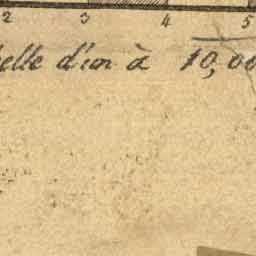 2 3 4 5
elle d'un à 10,00